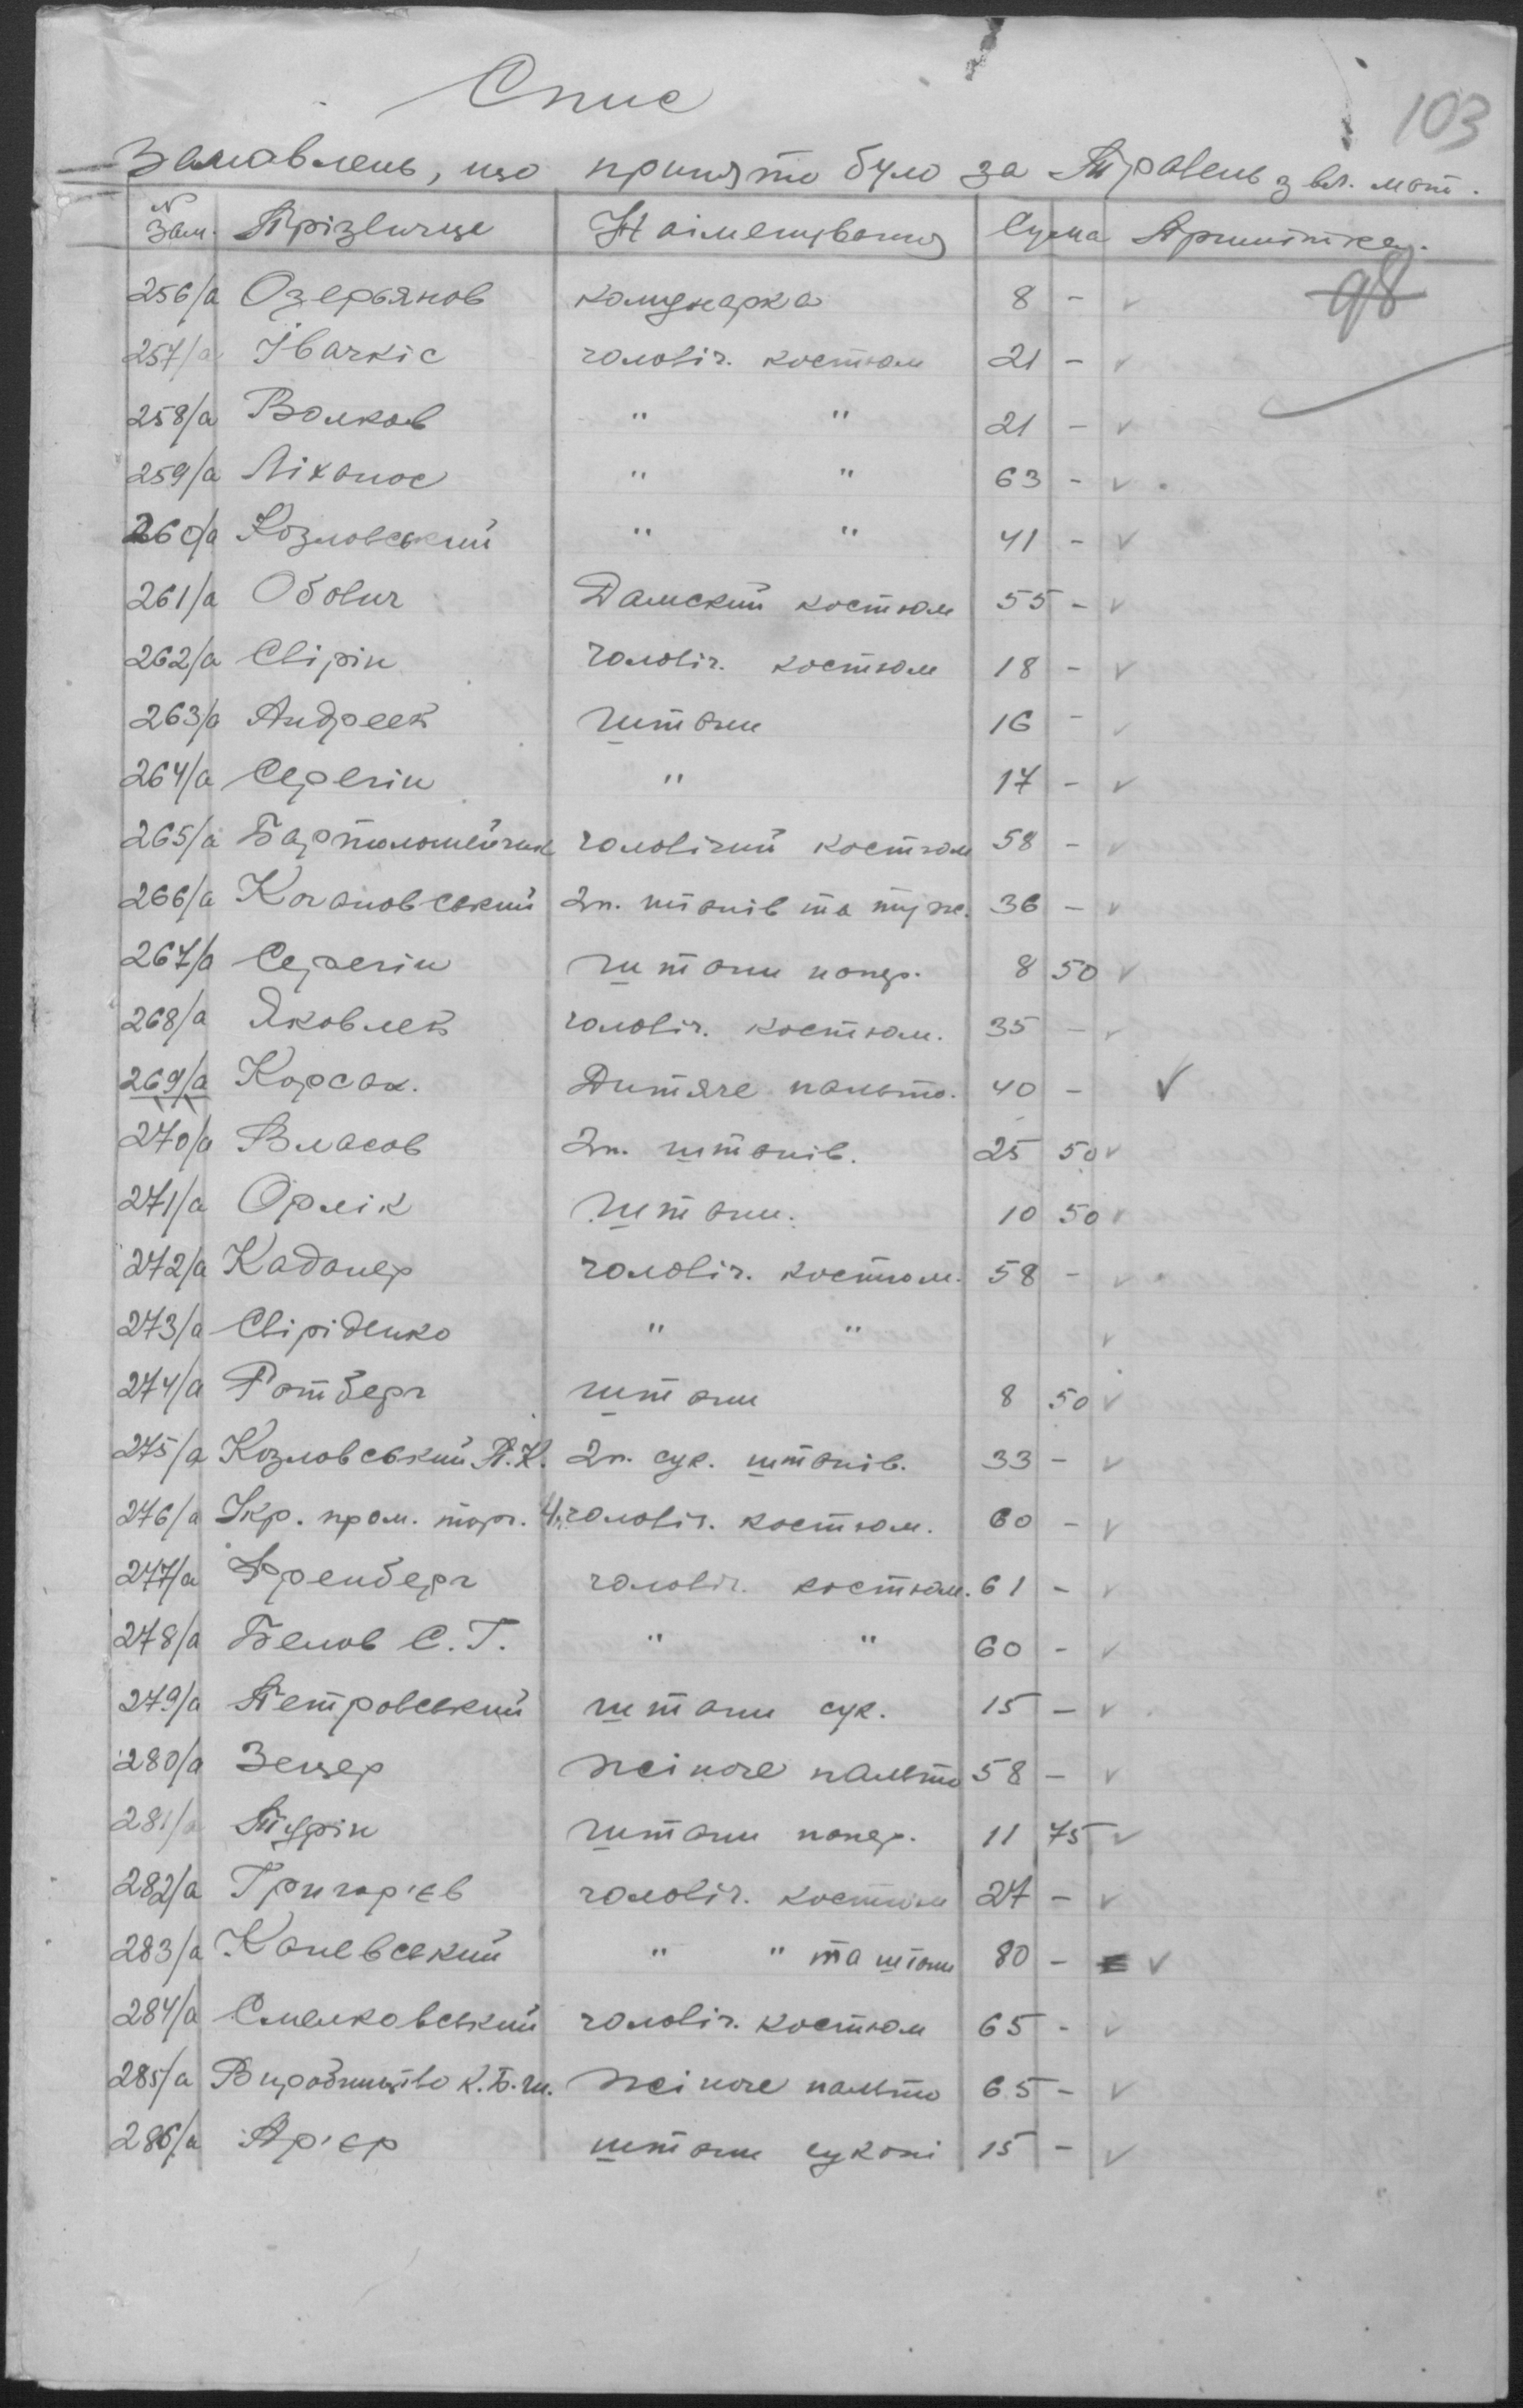 Спис
103
Замовлень, що принято було за Травень з вл. мат.
N Зам. Прізвище Найменування Сума Примітка.
98
256/а Озерьянов комунарка 8 - v
257/а Івачкіс чоловіч. костюм 21 - v
258/а Волков " " 21 - v
259/а Ліханос " " 63 - v
260/а Козловський " " 41 - v
261/а Обович Дамский костюм 55 - v
262/а Свірін чоловіч. костюм 18 - v
263/а Андреев штани 16 - v
264/а Серегін " 17 - v
265/а Бартоломейчик чоловічий костюм 58 - v
266/а Качановський 2п. штанів та туж. 36 - v
267/а Серегін штани попер. 8 50 v
268/а Яковлев чоловіч. костюм. 35 - v
269/а Корсак. Дитяче пальто. 40 - v
270/а Власов 2п. штанів. 25 50 v
271/а Орлік штани. 10 50 v
272/а Каданер чоловіч. костюм. 58 - v
273/а Свіріденко " " v
274/а Ротберг штани 8 50 v
275/а Козловський П.К. 2п. сук. штанів. 33 - v
276/а Укр. пром. торг. 4. чоловіч. костюм. 60 - v
277/а Френберг чоловіч. костюм. 61 - v
278/а Белов С.Г. " " 60 - v
279/а Петровський штани сук. 15 - v
280/а Зецер жіноче пальто 58 - v
281/а Турін штани попер. 11 75 v
282/а Григор'єв чоловіч. костюм 27 - v
283/а Каневський " " та штани 80 - v
284/а Смелковський чоловіч. костюм 65 - v
285/а Виробництво К.Б.Ш. жіноче пальто 65 - v
286/а Ар'єр штани сукані 15 - v